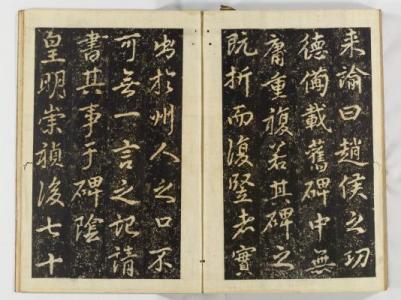 来諭曰趙侯之功
德備載舊碑中無
庸重複若其碑之
既折而復竪者實
出於州人之口不
可無一言之記請
書其事于碑陰
皇明崇禎後七十